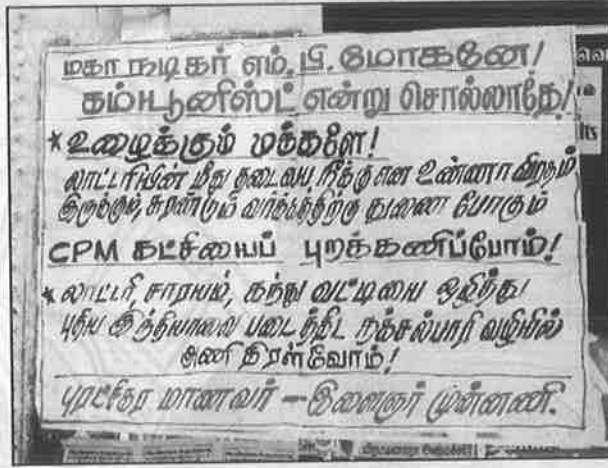 மகா நடிகர் எம்.பி.மோகனே!
கம்யூனிஸ்ட் என்று சொல்லாதே!
* உழைக்கும் மக்களே!
லாட்டரியின் மீது தடையை நீக்கு என உண்ணாவிரதம்
இருக்கும், சுரண்டும் வர்க்கத்திற்கு துணை போகும்
CPM கட்சியைப் புறக்கணிப்போம்!
* லாட்டரி, சாராயம், கந்து வட்டியை ஒழித்து
புதிய இந்தியாவை படைத்திட நக்சல்பாரி வழியில்
அணி திரள்வோம்!
புரட்சிகர மாணவர் – இளைஞர் முன்னணி.